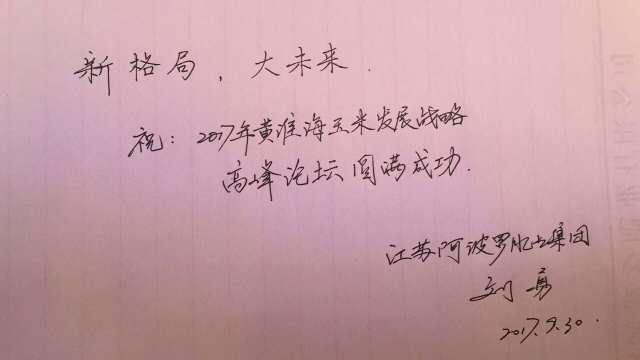 新格局，大未来.
祝：2017年黄淮海玉米发展战略
高峰论坛圆满成功.
江苏阿波罗肥业集团
刘勇
2017.9.30.